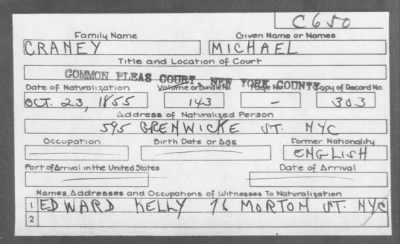 C650
Family Name Given Name or Names
CRANEY MICHAEL
Title and Location of Court
COMMON PLEAS COURT, NEW YORK COUNTY
Date of Naturalization Volume or Bundle No. Page No. Copy of Record No.
OCT. 23, 1855 143 - 303
Address of Naturalized Person
595 GRENWICKE ST. NYC
Occupation Birth Date or Age Former Nationality
ENGLISH
Port of Arrival in the United States Date of Arrival
Names, Addresses and Occupations of Witnesses To Naturalization
1 EDWARD KELLY 76 MORTOM ST. NYC
2